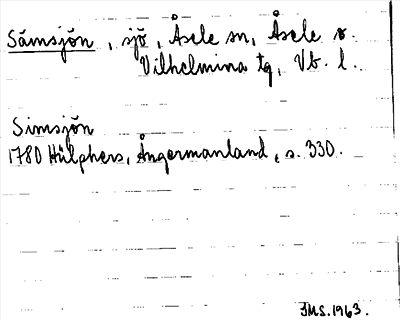 Sämsjön, sjö, Åsele sn, Åsele o.
Vilhelmina tg, Vb. l.
Simsjön
1780 Hülphers, Ångermanland, s. 330.
IMS.1963.